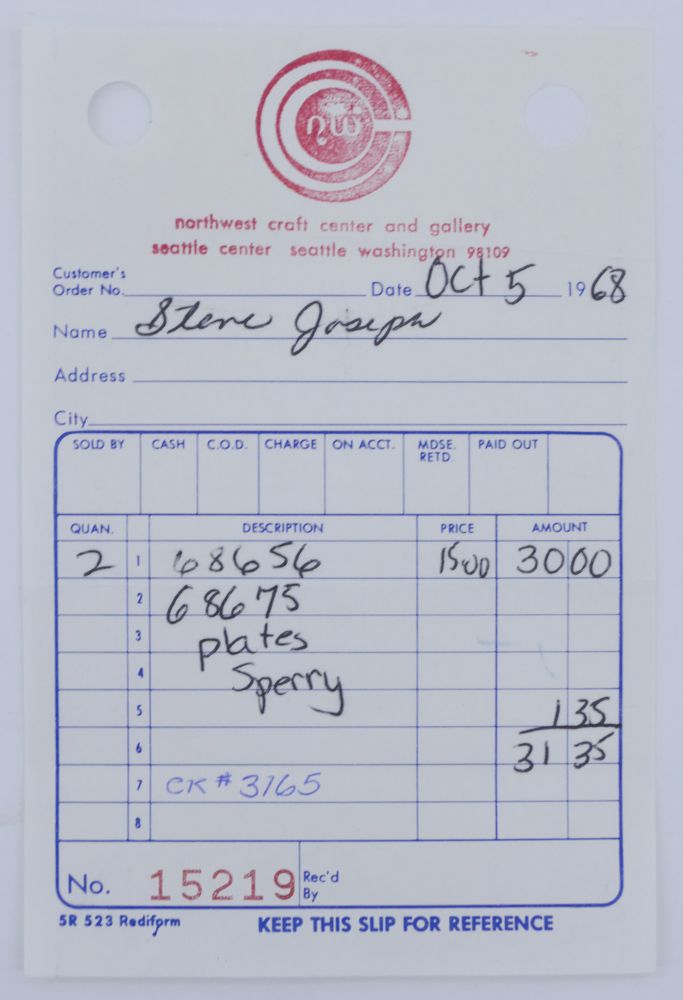 nw
northwest craft center and gallery
seattle center seattle washington 98109
Customer's
Order No. Date Oct 5 1968
Name Steve Joseph
Address
City
SOLD BY CASH C.O.D. CHARGE ON ACCT. MDSE. RETD PAID OUT
QUAN. DESCRIPTION PRICE AMOUNT
2 1 68656 1500 3000
2 68675
3 plates
4 Sperry
5 1 35
6 31 35
7 CK # 3165
8
No. 15219 Rec'd By
5R 523 Rediform KEEP THIS SLIP FOR REFERENCE